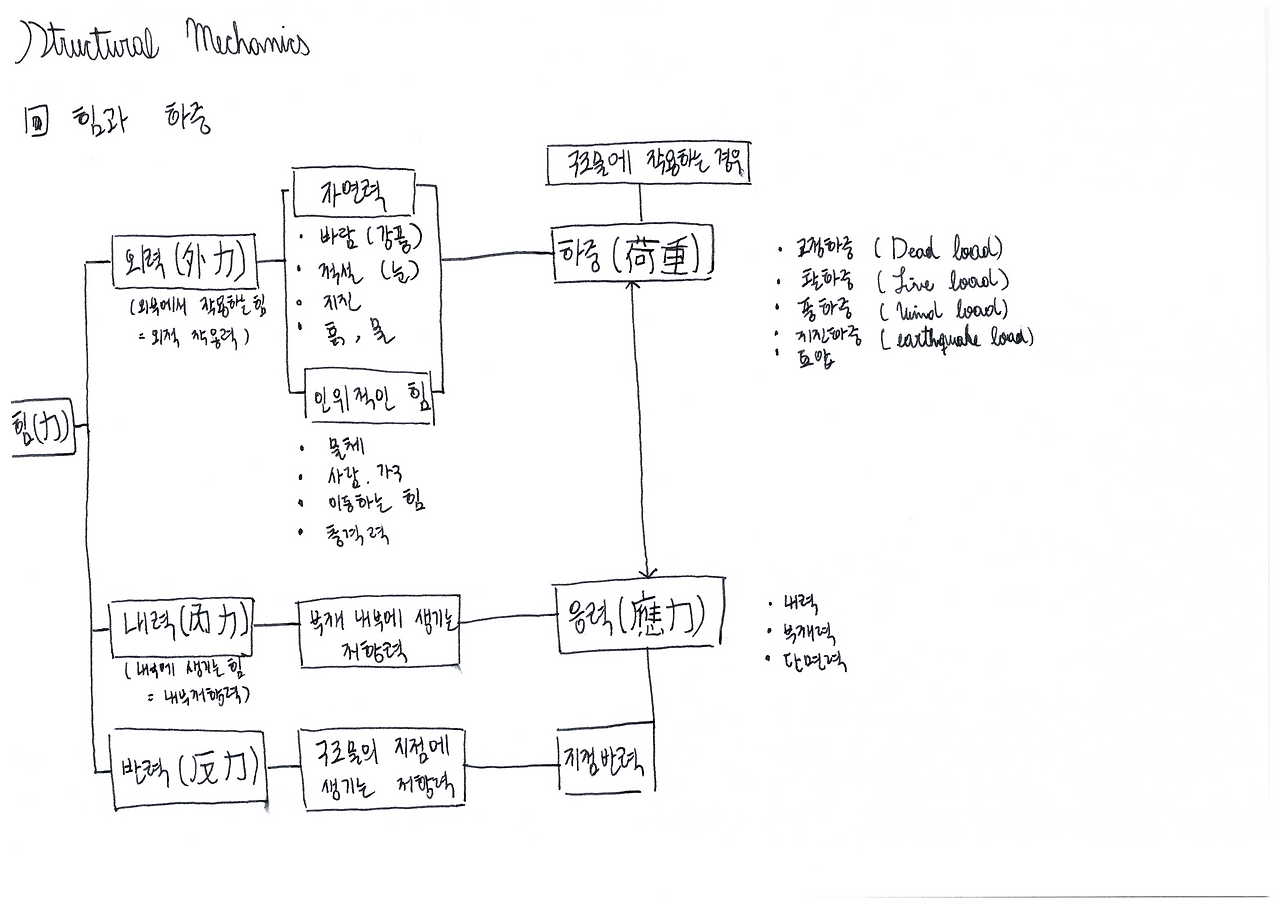 Structural Mechanics
힘과 하중
구조물에 작용하는 경우
자연력
외력(外力)
(외부에서 작용하는 힘
= 외적 작용력)
· 바람 (강풍)
· 적설 (눈)
· 지진
· 흙, 물
하중(荷重)
· 고정하중 (Dead load)
· 활하중 (Live load)
· 풍하중 (Wind load)
· 지진하중 (earthquake load)
· 토압
인위적인 힘
힘(力)
· 물체
· 사람. 가구
· 이동하는 힘
· 충격력
내력(内力)
(내부에 생기는 힘
= 내부저항력)
부재 내부에 생기는
저항력
응력(應力)
· 내력
· 부재력
· 단면력
반력(反力)
구조물의 지점에
생기는 저항력
지점반력